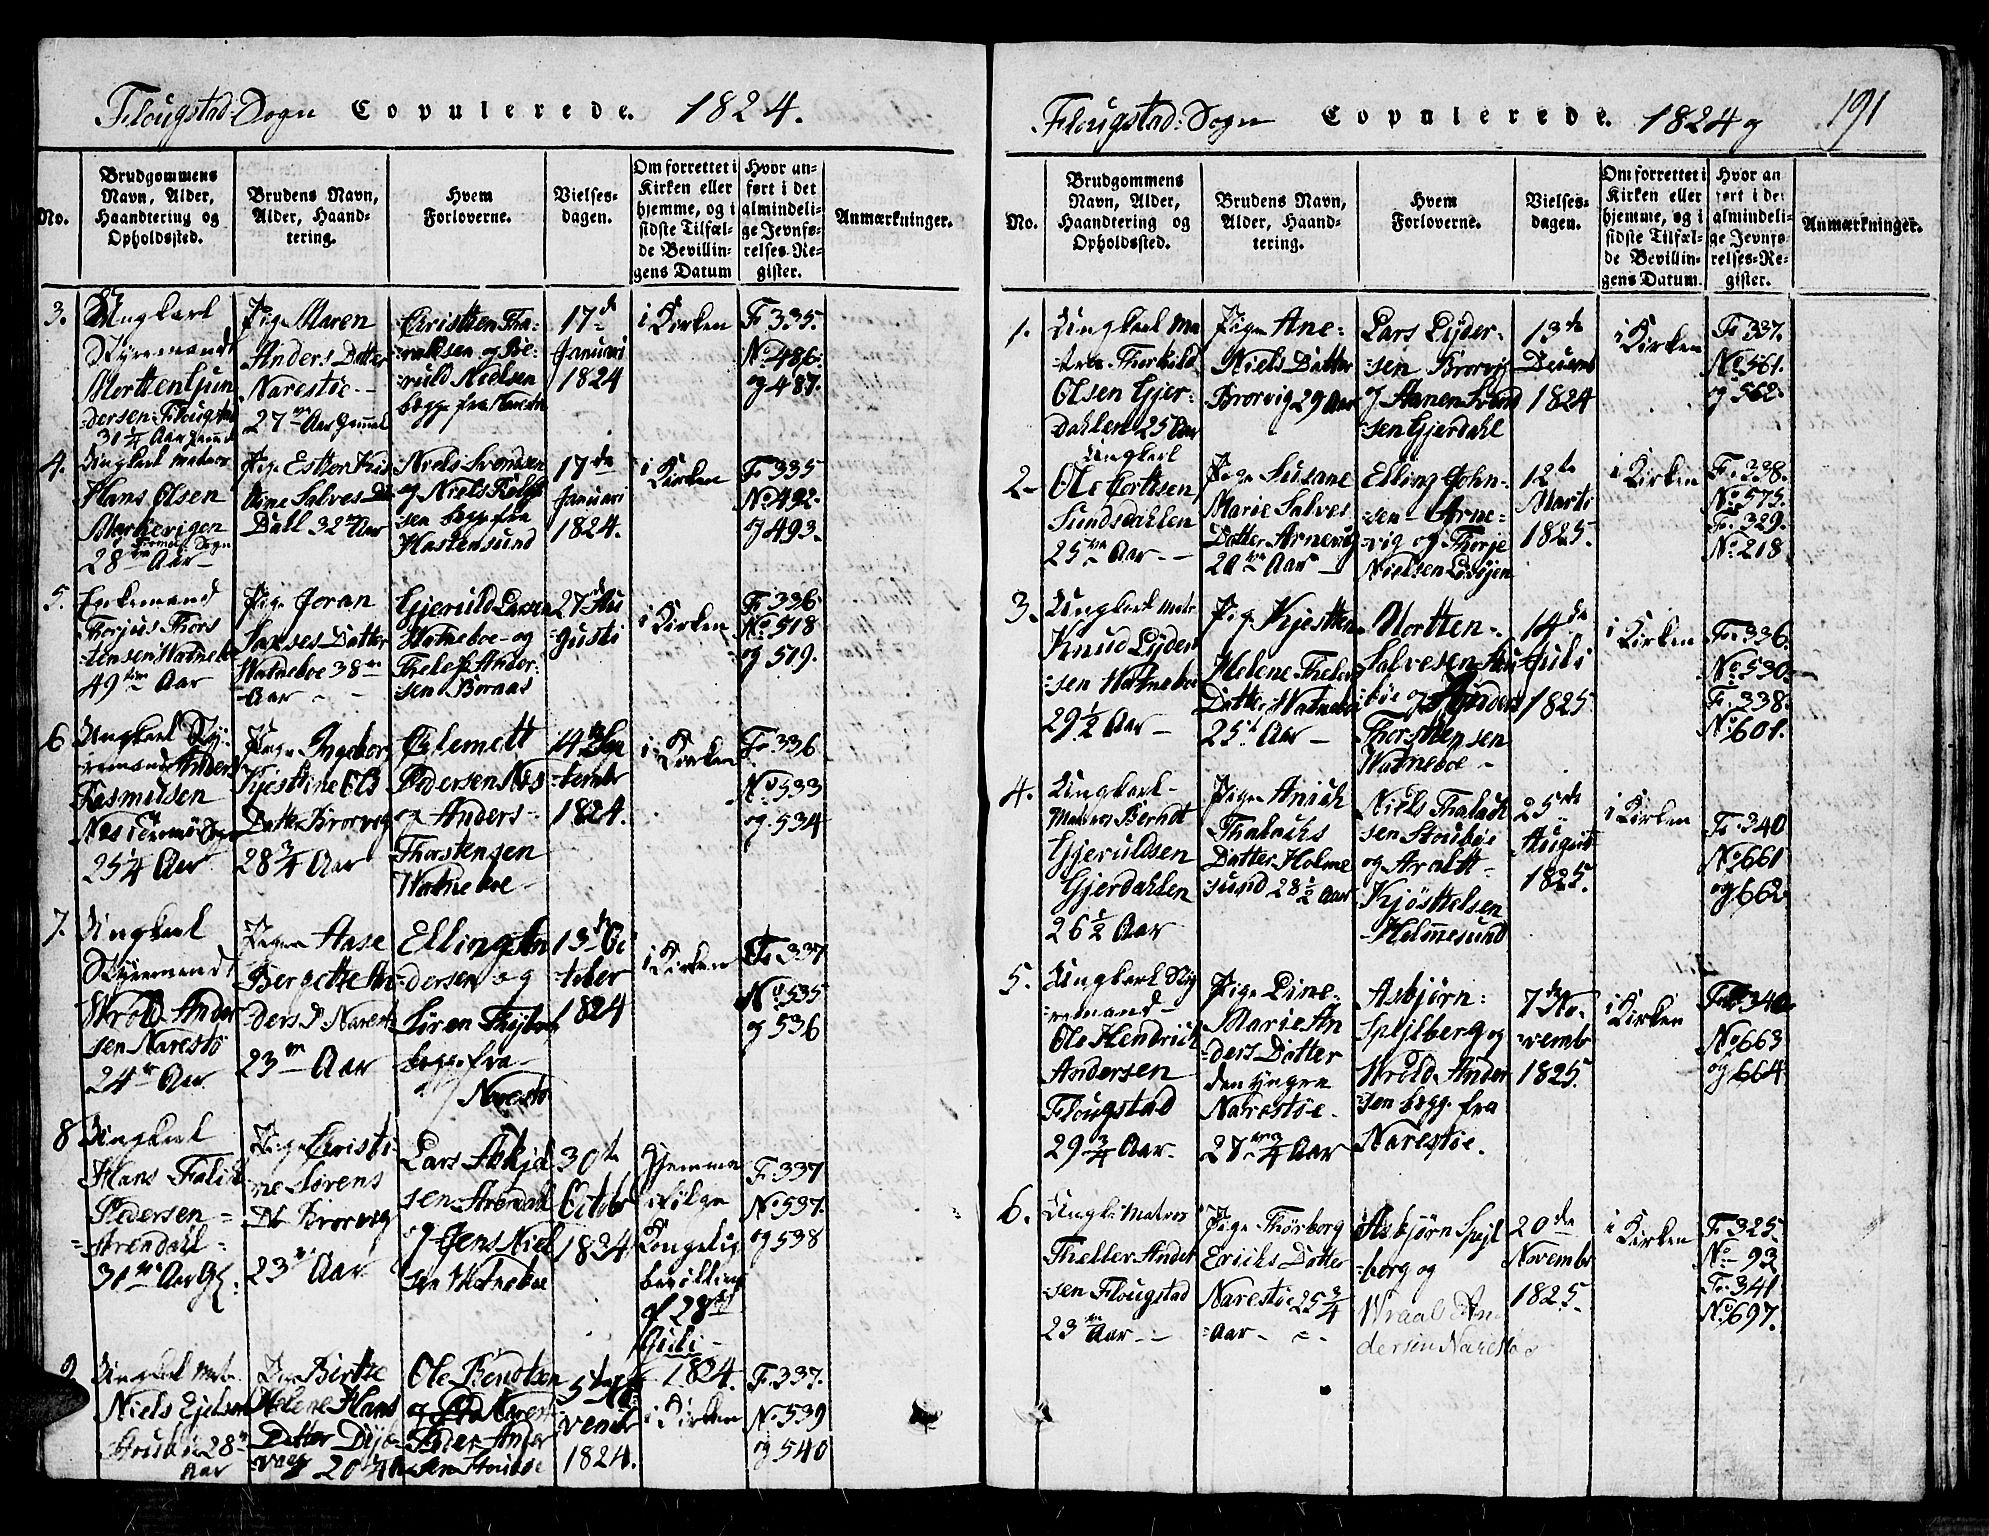 Flougstad-Sogn Copulerede. 1824.
No.
Brudgommens
Navn, Alder,
Haandtering og
Opholdssted.
Brudens Navn,
Alder, Haand-
tering.
Hvem
Forloverne.
Vielses-
dagen.
Om forrettet i
Kirken eller
hjemme, og i
sidste Tilfæl-
de Bevillin-
gens Datum
Hvor an-
ført i det
almindeli-
ge Jevnfø-
relses-Re-
gister.
Anmærkninger.
3.
Ungkarl
Styremandt
Mortten Gun
dersen Flougsta
31 1/4 Aar gamel
Pige Maren
Anders Datter
Narestøe
27 Aar Gammel
Christten Tha-
raldsen og Be-
ruld Nielsen
begge fra Narestø
17de
Januari
1824
i Kirken
F. 335.
No. 486.
og 487.
4.
Ungkarl Matros
Hans Olsen
28 Aar
Pige Esther Kir
stine Salves D
Dall 32 Aar
Niels Svendsen
og Niels
sen begge fra
Hastensund
17de
Januari
1824.
i Kirken
F. 335
No. 492.
og 493.
5.
Enkemand
Thorjus Thors
tensen Watnebo
49 Aar
Pige Joran
Salves Datter
Watneboe 38
Aar
Gjeruld Larsen
Watneboe og
Thelef Ander-
sen Bornas
27de Au
gusti
i Kirken
F. 336
No. 518
og 519.
6
Ungkarl Sty-
remand Anders
Rasmusen
Næs i Tromø Sogn
25 1/4 Aar
Pige Ingeborg
Kjestine Ols
Datter Brorvig
28 3/4 Aar
Clemett
Pedersen Næs
og Anders
Thorstensen
Watneboe
14de Sep
tembr
1824.
i Kirken
F. 336
No. 533
og 534
7.
Ungkarl
Styremandt
Wrold Ander
sen Narestø
24 Aar
Pige Aase
Bergette An
ders D. Narest
23 Aar
Elling An
dersen og
Søren
begge fra
Narestø
13de Oc
tober
1824
i Kirken
F. 337
No. 535
og 536
8
Ungkarl
Hans Falck
Pedersen
Arendahl
31 Aar Gl.
Pige Christi
ne Sørens
Dt Brorvig
23 Aar
Lars Askjel
sen Arendal
og Jens Niel
sen Watneboe
30te
Octobr
1824
Hjemme
ifølge
Kongelig
bevilling
af 28de
Juli
1824.
F. 337
No. 537.
og 538
9
Ungkarl Matr.
Niels Ejelsen
Stoubøe 28
Aar
Pige Birtte
Helene Hans
Datter Dyb-
vaag 20 1/4 Aar
Ole Bendtsen
og Narest
Peder Ander
sen Stoubøe
5te No-
vembr
1824.
i Kirken
F. 337.
No. 539
og 540
Flougstad-Sogn Copulerede. 1824 og 191
No.
Brudgommens
Navn, Alder,
Haandtering og
Opholdssted.
Brudens Navn,
Alder, Haand-
tering.
Hvem
Forloverne.
Vielses-
dagen.
Om forrettet i
Kirken eller
hjemme, og i
sidste Tilfæl-
de Bevillin-
gens Datum
Hvor an
ført i det
almindeli-
ge Jevnfø-
relses-Re-
gister.
Anmærkninger.
1.
Ungkarl Ma
tros Thorkild
Olsen Gjer-
Dahlen 25 Aar
Pige Ane-
Niels Datter
Brorvig 29 Aar
Lars Lyder-
sen Brorvig
og Aanen Svend
sen Gjerdahl
13de
Decemb
1824
i Kirken
F. 337.
No. 561.
og 562.
2
Ungkarl
Ole Torttsen
Sundsdahlen
25 Aar
Pige Susane
Marie Salves
Datter Arnevig
20 Aar
Elling John-
sen Arne-
vig og Thorje
Nielsen
12te
Marti
1825.
i Kirken
F. 338.
No. 575.
F. 329.
No. 218
3.
Ungkarl Matr.
Knud Lyder
sen Watneboe
29 1/2 Aar
Pige Kjestten
Helene Thelefs
Datter Watneboe
25 Aar
Mortten
Salvesen Stou
bøe og Anders
Thorstensen
Watneboe
14de
Juli
1825
i Kirken
F. 336.
No. 530.
F. 338.
No. 601.
4.
Ungkarl
Matros Berndt
Gjeruldsen
Gjerdahlen
26 1/2 Aar
Pige Anich
Thalachs
Datter Holme
sund 28 1/2 Aar
Niels Thalach
sen Stoubøe
og Aralt
Kjøsttelsen
Holmesund
25de
August
1825.
i Kirken
F. 340
No. 661
og 662
5.
Ungkarl Sty
remand
Ole Hendrich
Andersen
Flougstad
29 3/4 Aar
Pige Line
Marie An
ders Datter
den yngre
Narestøe.
27 3/4 Aar
Asbjørn
Spejlberg og
Wrold Ander
sen begge fra
Narestøe.
7de No-
vembr
1825.
i Kirken
F. 340
No. 663
og 664
6.
Ungk. Matros
Theller Ander
sen Flougstad
23 Aar
Pige Thorborg
Erichs Datter
Narestøe 25 3/4
Aar
Asbjørn Spejl
berg og
Wraal An
dersen Narestøe
20de
Novembr
1825.
i Kirken
F. 325.
No. 93
F. 341
No. 697.